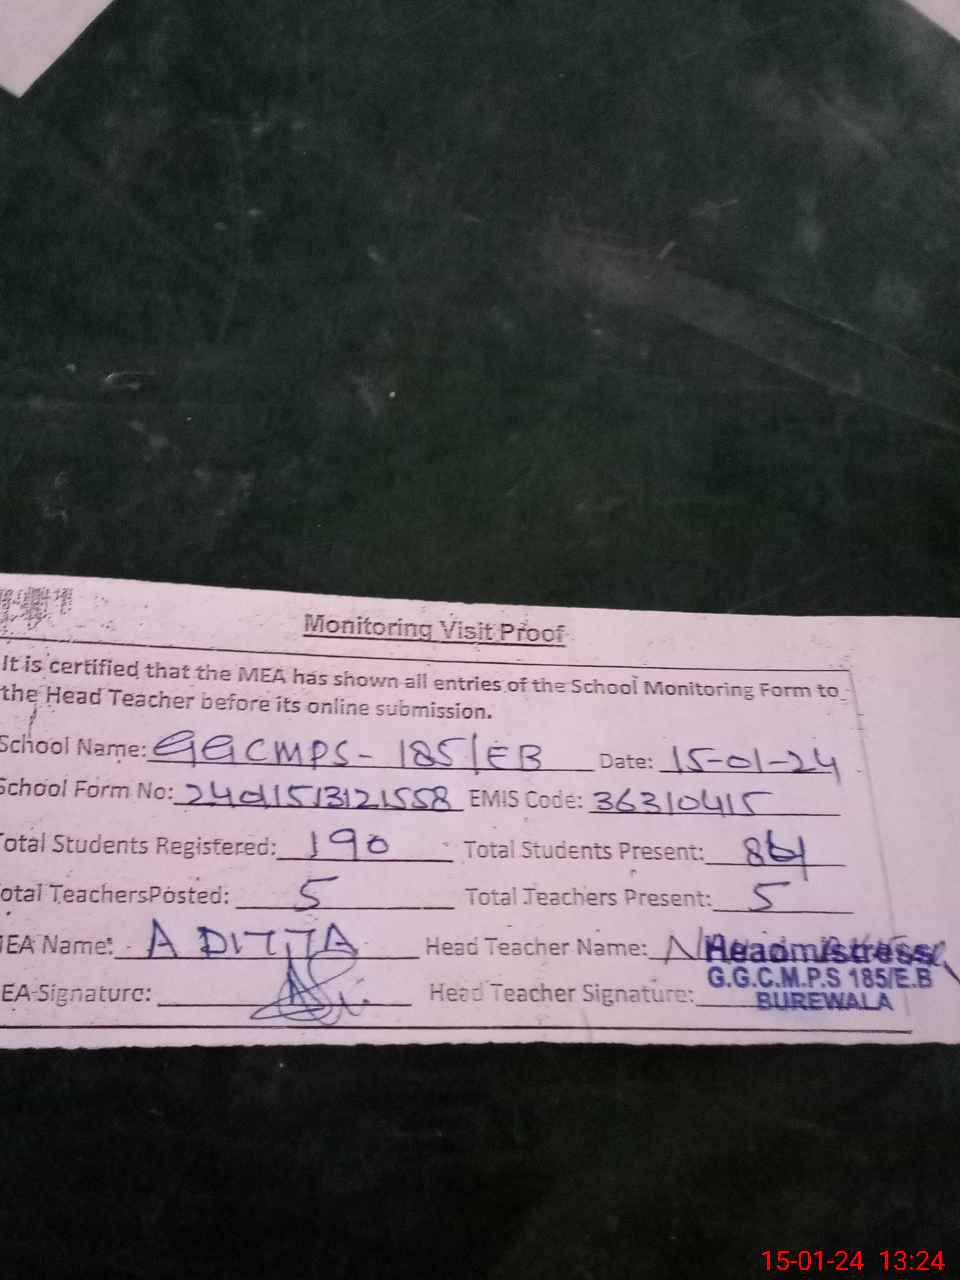 Monitoring Visit Proof
It is certified that the MEA has shown all entries of the School Monitoring Form to
the Head Teacher before its online submission.
School Name: GGCMPS- 185/EB Date: 15-01-24
School Form No: 2401513121558 EMIS Code: 36310415
Total Students Registered: 190 Total Students Present:
Total TeachersPosted: 5 Total Teachers Present: 5
MEA Name: Head Teacher Name: Headmistress
MEA Signature: Head Teacher Signature: G.G.C.M.P.S 185/E.B
BUREWALA
15-01-24 13:24